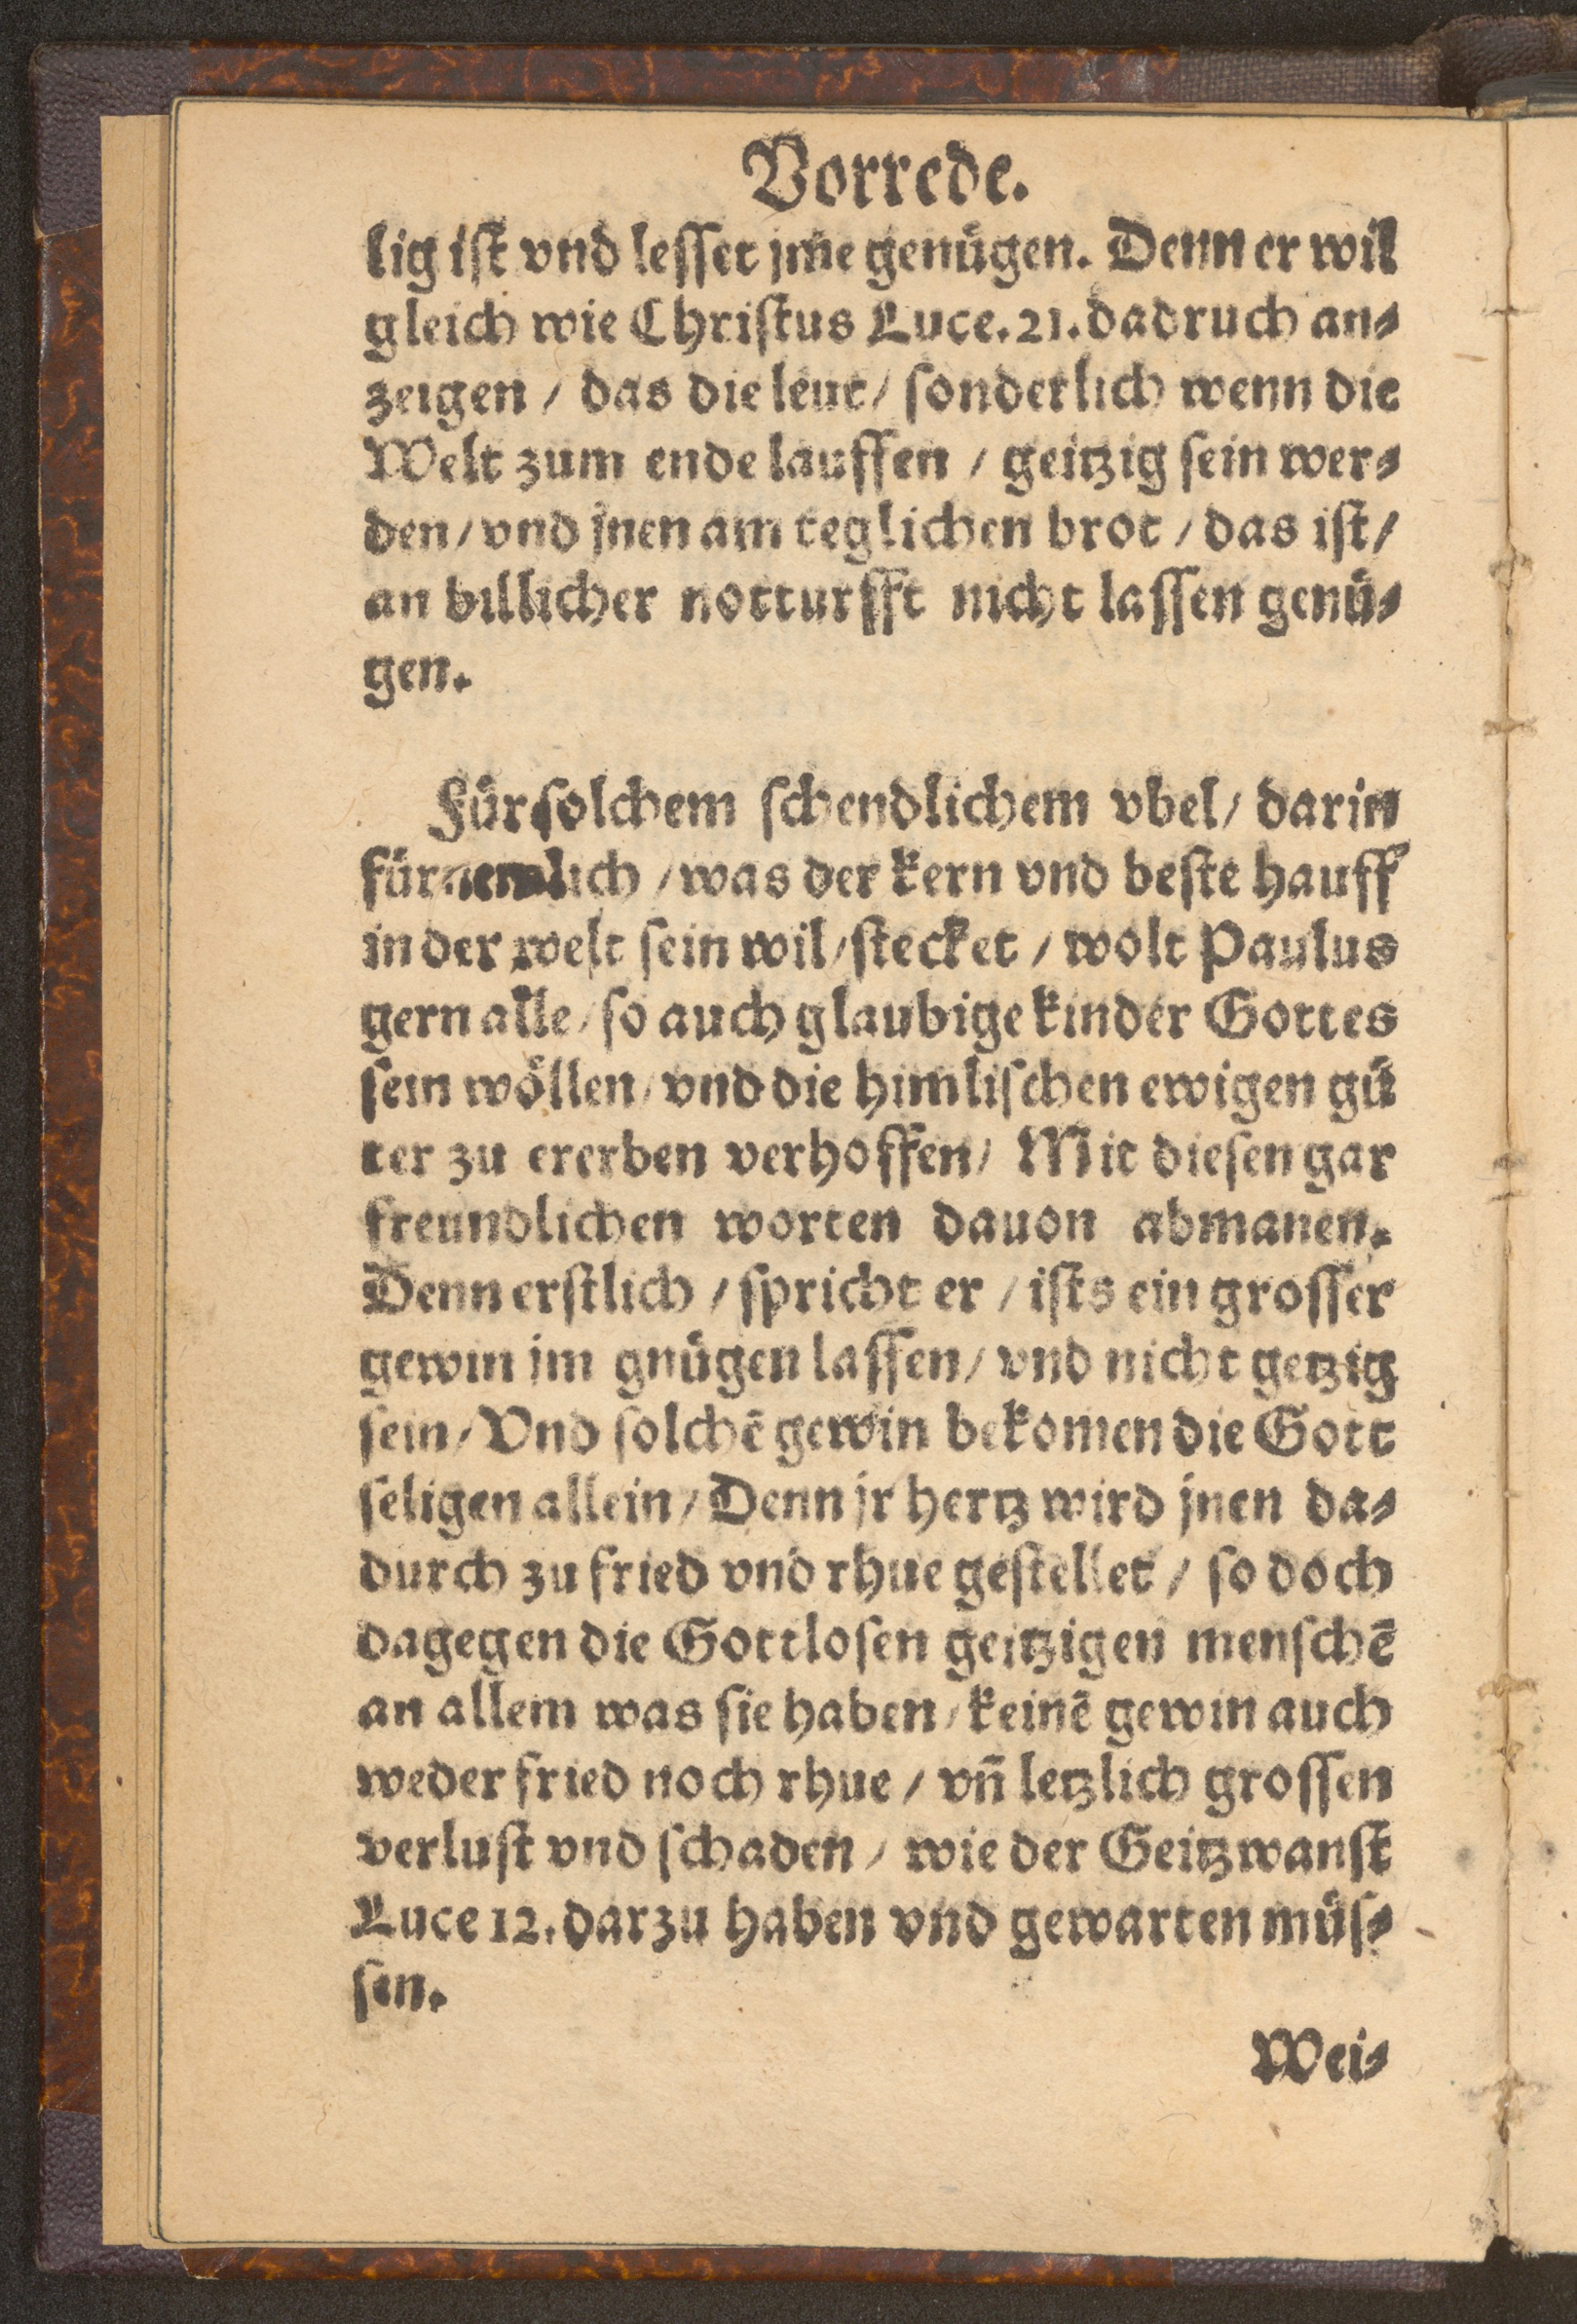 Vorrede.
lig iſt vnd leſſet jme genuͤgen. Denn er wil
gleich wie Chriſtus Luce. 21. dadruch an⸗
zeigen / das die leut / ſonderlich wenn die
Welt zum ende lauffen / geitzig ſein wer⸗
den / vnd jnen am teglichen brot / das iſt /
an billicher notturfft nicht laſſen genuͤ⸗
gen.
Fuͤr ſolchem ſchendlichem vbel / darin
fuͤrnemlich / was der kern vnd beſte hauff
in der welt ſein wil / ſtecket / wolt Paulus
gern alle / ſo auch glaubige kinder Gottes
ſein woͤllen / vnd die himliſchen ewigen guͤ
ter zu ererben verhoffen / Mit dieſen gar
freundlichen worten dauon abmanen.
Denn erſtlich / ſpricht er / iſts ein groſſer
gewin jm gnuͤgen laſſen / vnd nicht getzig
ſein / Vnd ſolchē gewin bekomen die Gott
ſeligen allein / Denn jr hertz wird jnen da⸗
durch zu fried vnd rhue geſtellet / ſo doch
dagegen die Gottloſen geitzigen menſchē
an allem was ſie haben / keinē gewin auch
weder fried noch rhue / vn̄ letzlich groſſen
verluſt vnd ſchaden / wie der Geitzwanſt
Luce 12. darzu haben vnd gewarten muͤſ⸗
ſen.
Wei⸗